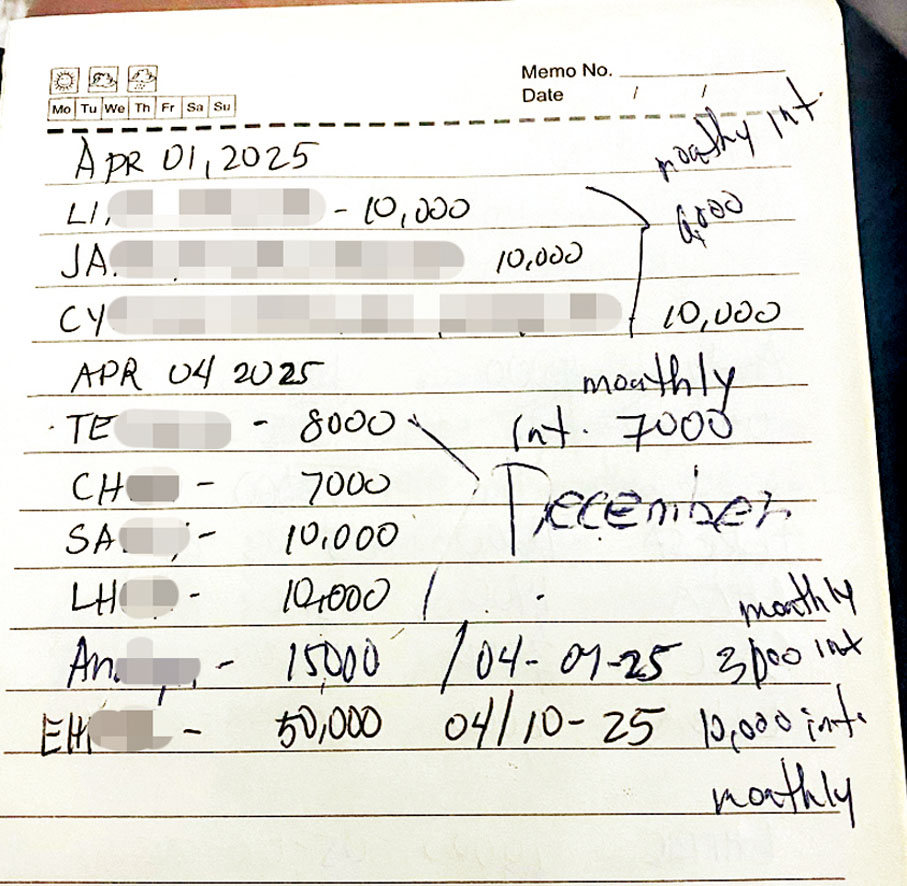 Memo No.
Mo Tu We Th Fr Sa Su
Date / /
APR 01, 2025
monthly int.
LI. - 10,000
6,000
JA. 10,000
CY 10,000
APR 04 2025
monthly
TE - 8000
int. 7000
CH - 7000
December
SA - 10,000
LH - 10,000
monthly
An. - 15,000 / 04-09-25 3,000 int
EH - 50,000 04/10-25 10,000 int.
monthly